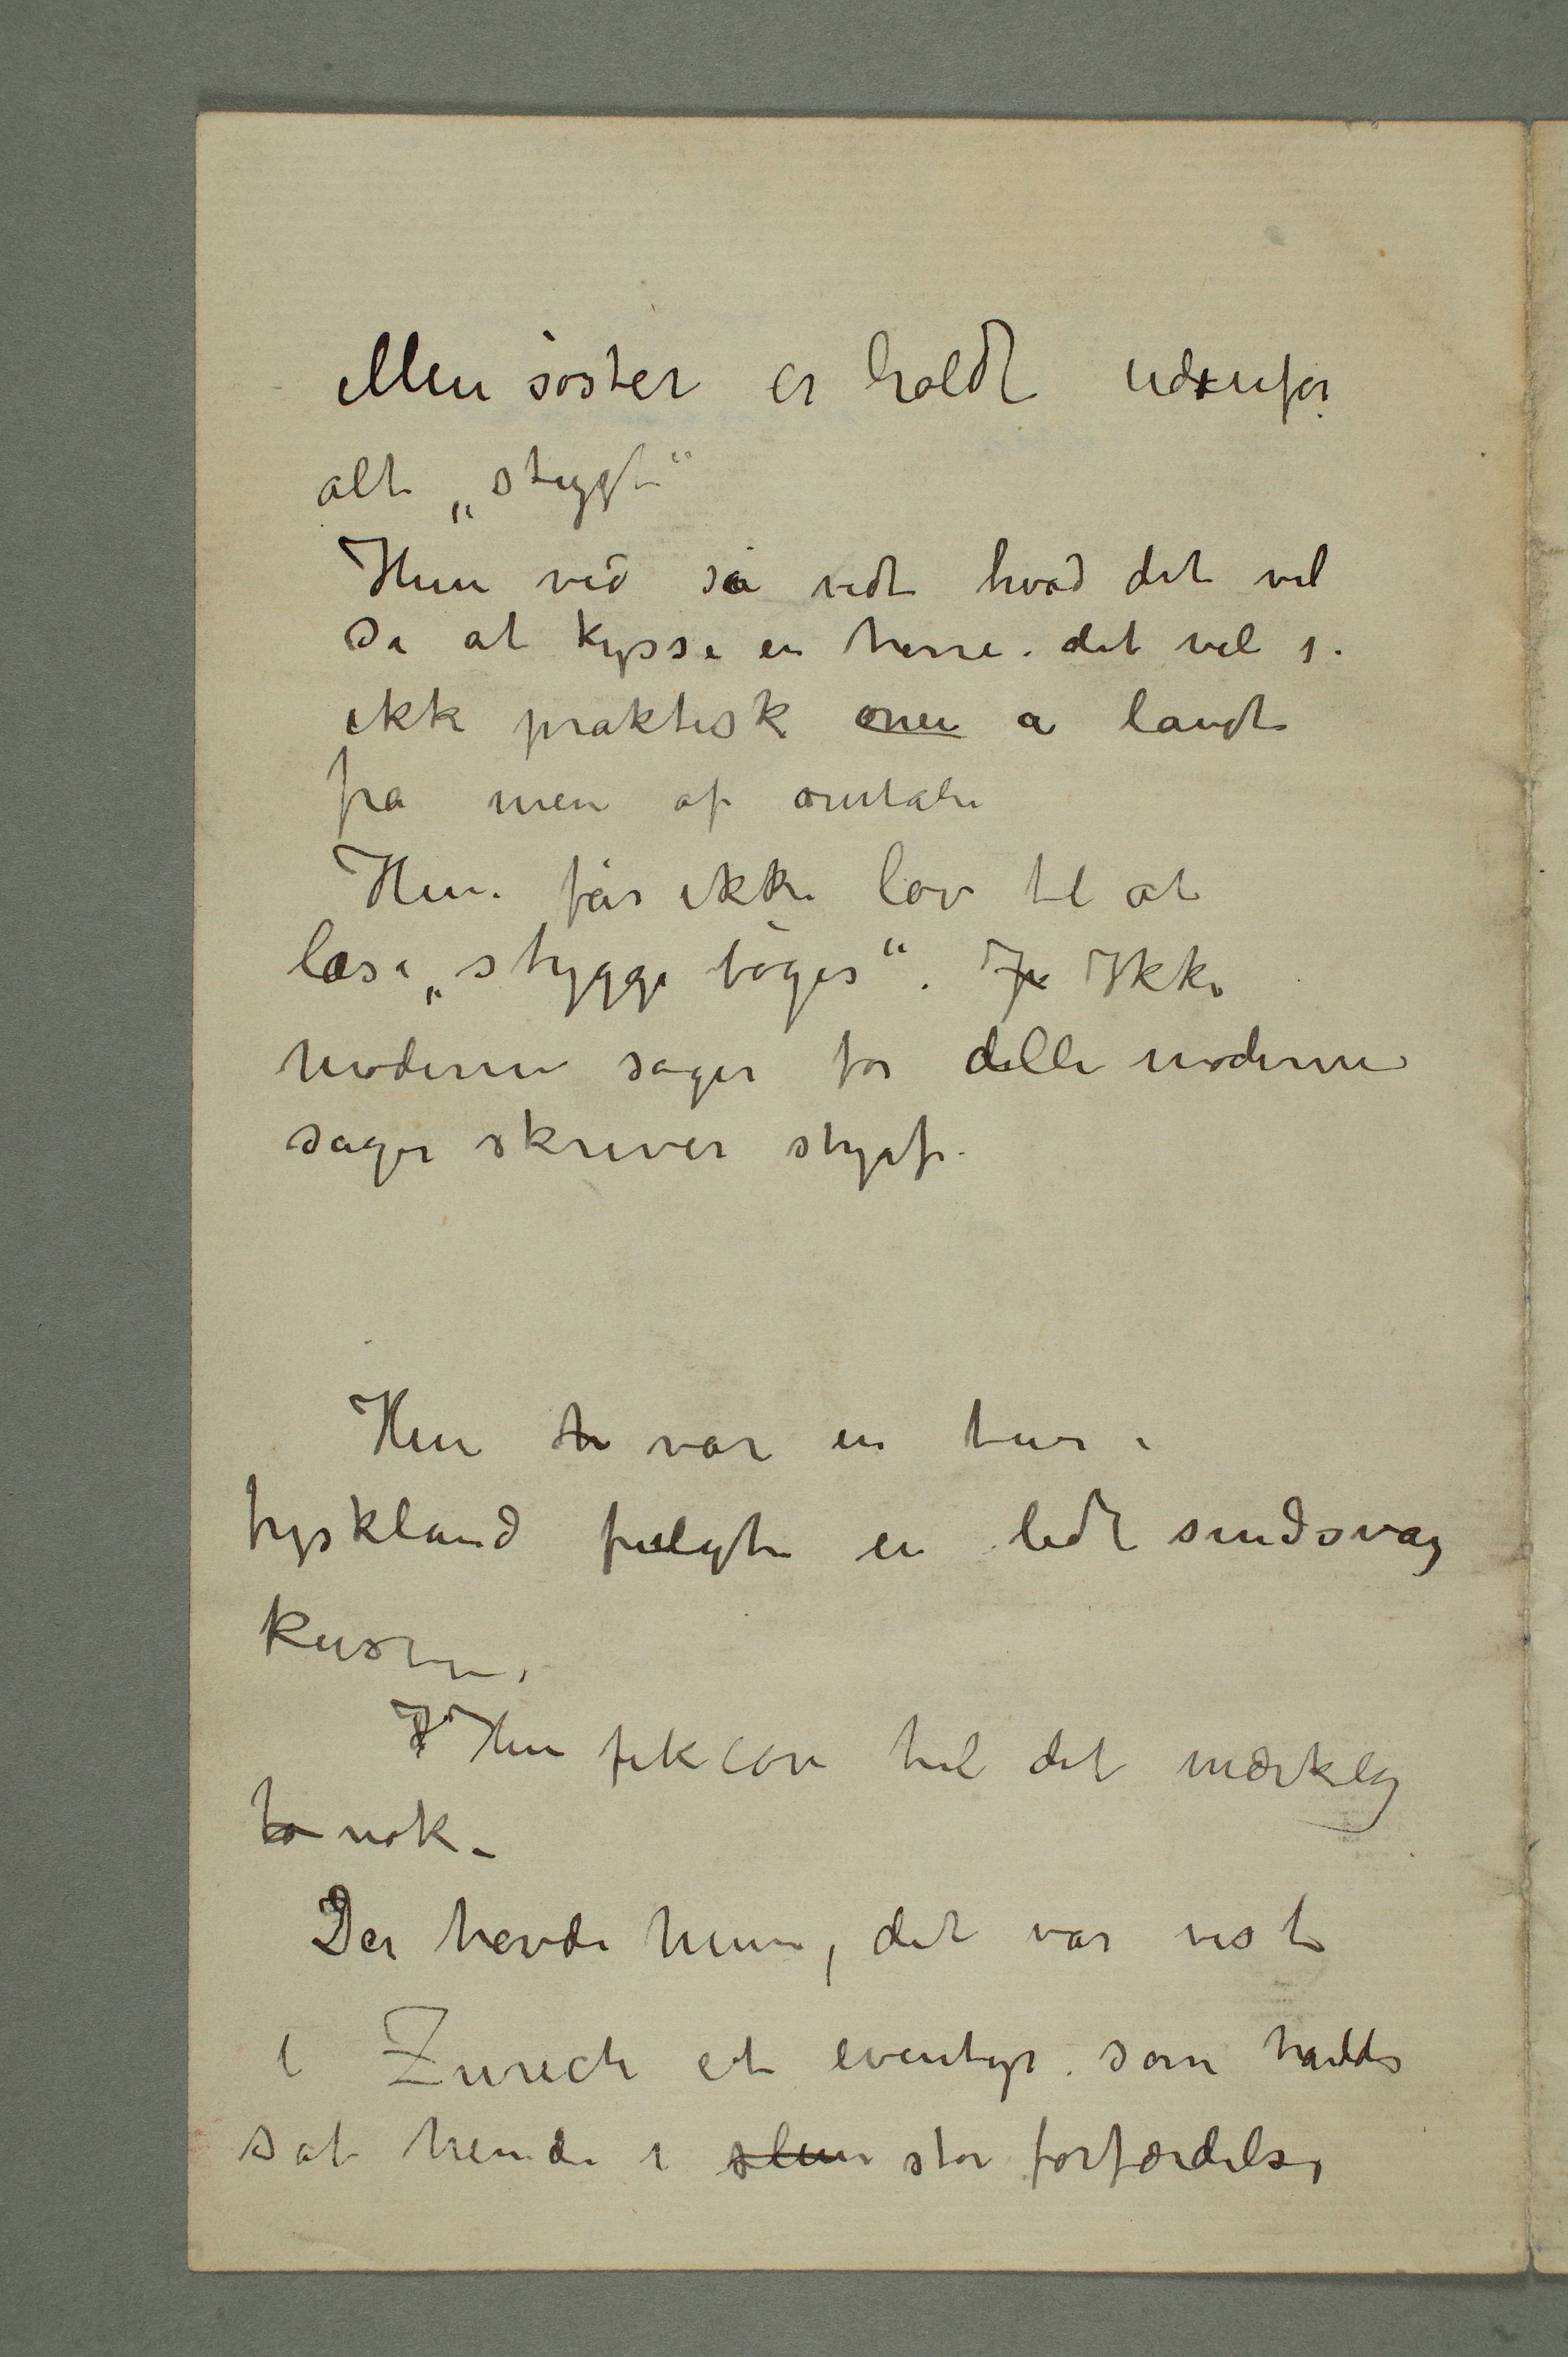 Min søster er holdt udenfor
alt „stygt“
Hun ved så vidt hvad det vil
si at kysse en herre. det vil s.
ikke praktisk men a langt
fra men af omtale
Hun får ikke lov til at
læse „stygge bøger“. Ikke
moderne sager for dette moderne
sager skriver stygt.
Hun var en tur i
tyskland fulgte en lidt sindsvag
kusine.
Hun fik lov til det mærkelig
nok.
Der hændte hun, det var vist
i Zurich et eventyr som hadde
sat hende i stor forfærdelse